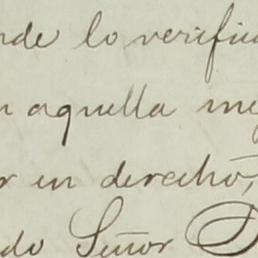 nde lo verific
n aquella me
r en derecho,
do Señor D